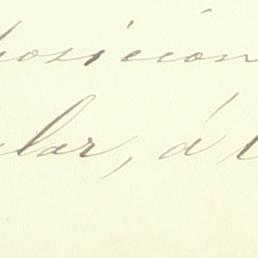 posición
ular, á l